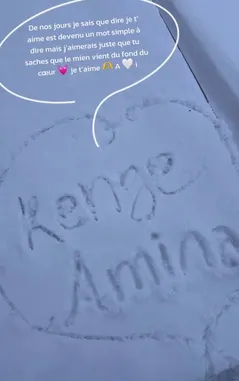 De nos jours je sais que dire je t'
aime est devenu un mot simple à
dire mais j'aimerais juste que tu
saches que le mien vient du fond du
cœur 💓 je t'aime 🫶 A 🤍 i
Kenze
Amina